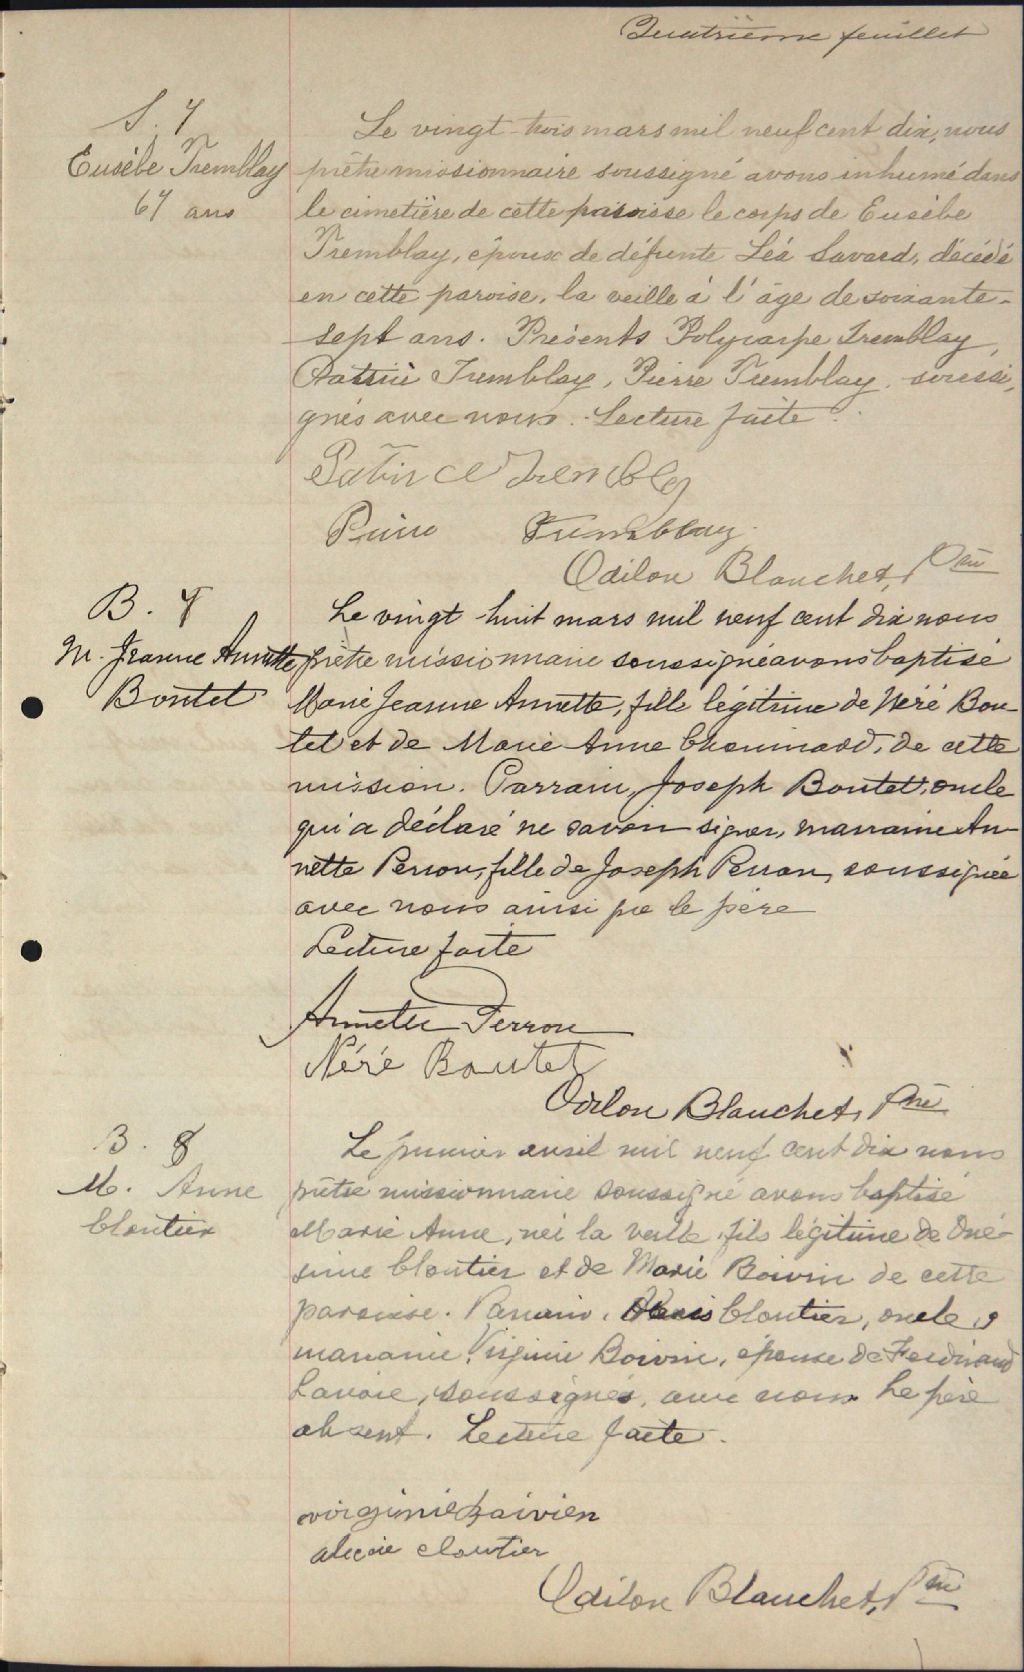 Quatrième feuillet
S. 7
Eusèbe Tremblay
67 ans
Le vingt-trois mars mil neuf cent dix, nous
prêtre missionnaire soussigné avons inhumé dans
le cimetière de cette paroisse le corps de Eusèbe
Tremblay, époux de défunte Léa Savard, décédé
en cette paroise, la veille à l'âge de soixante-
sept ans. Présents Polycarpe Tremblay,
Patrice Tremblay, Pierre Tremblay, soussi-
gnés avec nous. Lecture faite.
Patrice Trembley
Pierre Tremblay
Odilon Blanchet, Ptre
B. 7
M. Jeanne Annette
Boutet
Le vingt-huit mars mil neuf cent dix nous
prêtre missionnaire soussigné avons baptisé
Marie Jeanne Annette, fille légitime de Néré Bou-
tet et de Marie-Anne Chouinard, de cette
mission. Parrain, Joseph Boutet, oncle
qui a déclaré ne savoir signer, marraine An-
nette Perron, fille de Joseph Perron, soussignée
avec nous ainsi que le père
Lecture faite
Annette Perron
Néré Boutet
Odilon Blanchet, Ptre
B. 8
M. Anne
Cloutier
Le premier avril mil neuf cent dix nous
prêtre missionnaire soussigné avons baptisé
Marie Anne, née la veille, fils légitime de Oné-
sime Cloutier et de Marie Boivin de cette
paroisse. Parrain, Cloutier, oncle,
marraine Virginie Boivin, épouse de Ferdinand
Lavoie, soussignés, avec nous. Le père
absent. Lecture faite.
virginie boivien
cloutier
Odilon Blanchet, Ptre